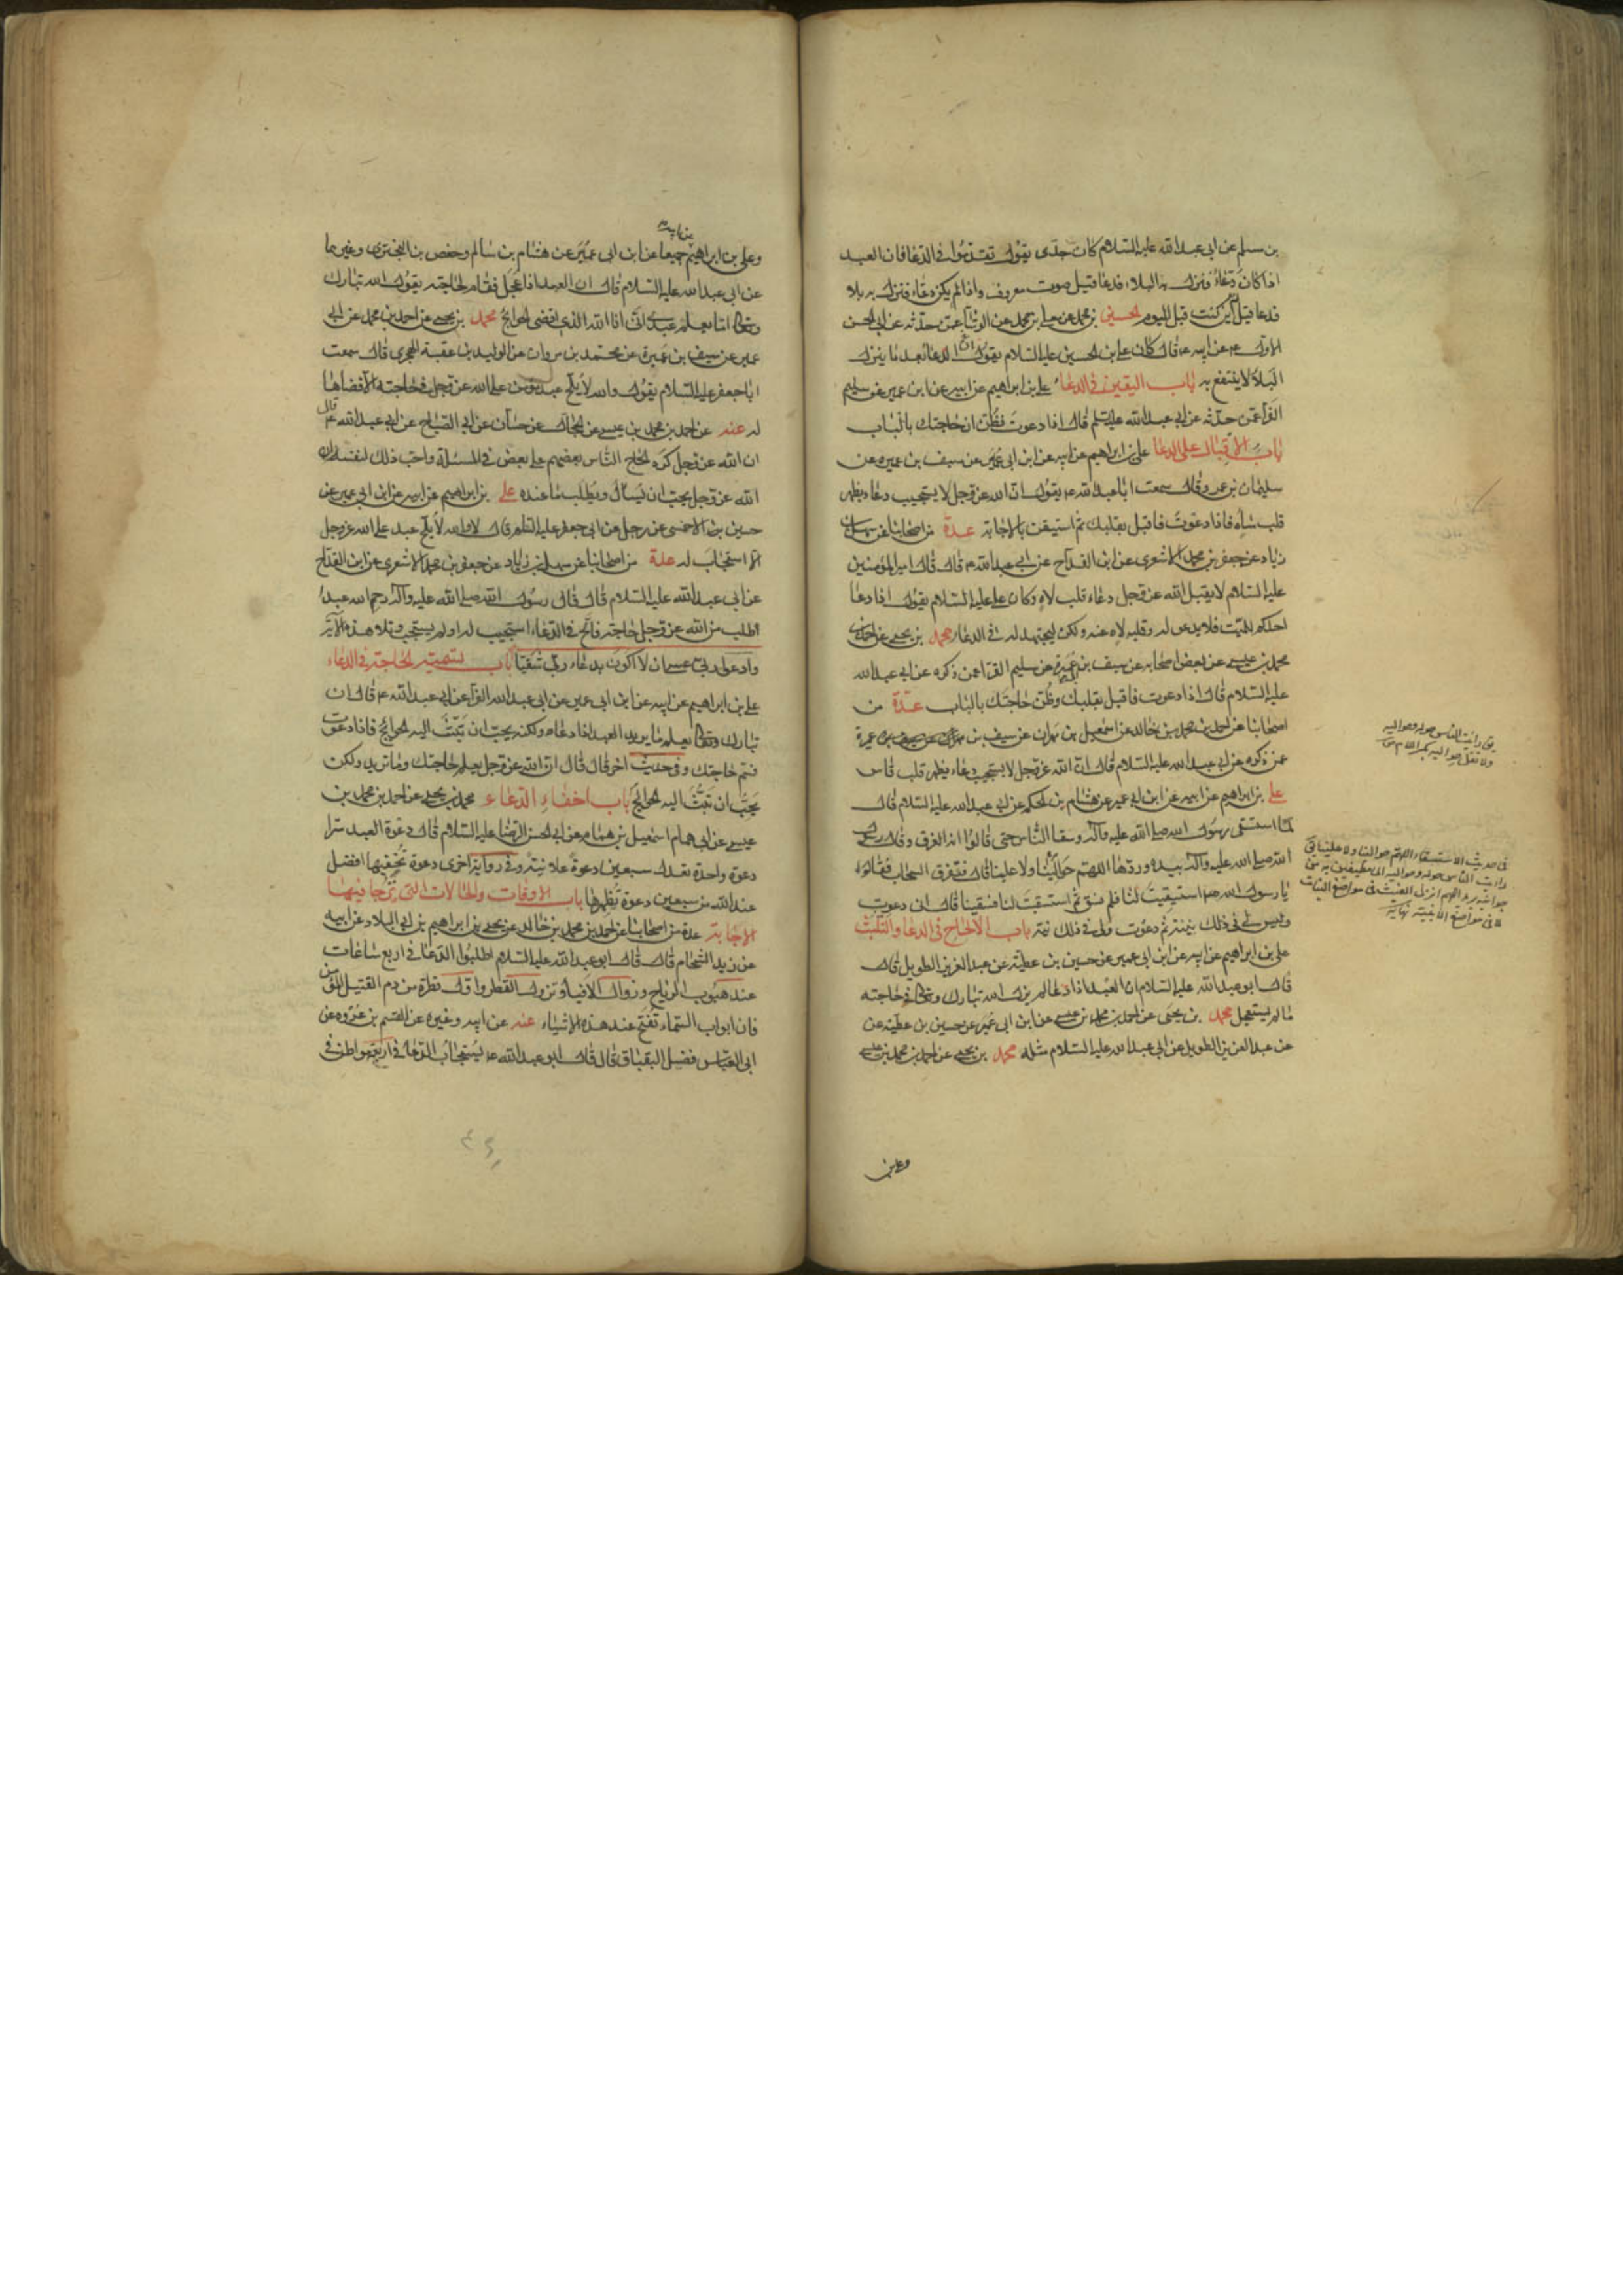 بن سلم عن ابى عبد الله عليه السلام كان جدى يقول تقدموا فى الدعا فان العبد
اذا كان دعّاءً فنزل به البلاء فدعا قيل صوت معروف واذا لم يكن دعّاء فنزل به بلا
فدعا قيل اين كنت قبل اليوم الحسين بن محمد عن معلى بن محمد عن الوشا عمن حدثه عن ابى الحسن
الاول ع عن ابيه ع قال كان على بن الحسين عليه السلام يقول ان الدعا بعد ما ينزل
البلاء لا ينتفع به باب اليقين فى الدعاء على بن ابراهيم عن ابيه عن ابن ابى عمير عن سليم
الفرا عمن حدثه عن ابى عبد الله عليه السلم قال اذا دعوت فظُن ان حاجتك بالباب
باب الاقبال على الدعا على بن ابراهيم عن ابيه عن ابن ابى عمير عن سيف بن عميره عن
سليمان بن عمرو قال سمعت ابا عبد الله ع يقول ان الله عز وجل لا يستجيب دعاء بظهر
قلب ساهٍ فاذا دعوت فاقبل بقلبك ثم استيقن بالاجابة عدة من اصحابنا عن سهل بن
زياد عن جعفر بن محمد الاشعرى عن ابن القداح عن ابى عبد الله ع قال قال امير المؤمنين
عليه السلام لا يقبل الله عز وجل دعاء قلب لاهٍ وكان على عليه السلام يقول اذا دعا
احدكم للميت فلا يدعو له وقلبه لاه عنه ولكن ليجتهد له فى الدعاء محمد بن يحيى عن احمد بن
محمد بن عيسى عن بعض اصحابه عن سيف بن عميرة عن سليم الفرا عمن ذكره عن ابى عبد الله
عليه السلام قال اذا دعوت فاقبل بقلبك وظُن حاجتك بالباب عدة من
اصحابنا عن احمد بن محمد بن خالد عن اسمعيل بن مهران عن سيف بن عميرة
عمن ذكره عن ابى عبد الله عليه السلام قال ان الله عز وجل لا يستجيب دعاء بظهر قلب قاس
على بن ابراهيم عن ابيه عن ابن ابى عمير عن هشام بن الحكم عن ابى عبد الله عليه السلام قال
لما استسقى رسول الله صلى الله عليه وآله وسقا الناس حتى قالوا انه الغرق وقال رسول
الله صلى الله عليه وآله بيده وردها اللهم حوالينا ولا علينا قال فتفرق السحاب فقالوا
يا رسول الله استسقيت لنا فلم نسق ثم استسقيت لنا فسقينا قال انى دعوت
وليس لى فى ذلك نية ثم دعوت ولى فى ذلك نية باب الالحاح فى الدعا والتلبث
على بن ابراهيم عن ابيه عن ابن ابى عمير عن حسين بن عطية عن عبد العزيز الطويل قال
قال ابو عبد الله عليه السلام ان العبد اذا دعا لم يزل الله تبارك وتعالى فى حاجته
ما لم يستعجل محمد بن يحيى عن احمد بن محمد بن عيسى عن ابن ابى عمير عن حسين بن عطية عن
عن عبد العزيز الطويل عن ابى عبد الله عليه السلام مثله محمد بن يحيى عن احمد بن محمد بن عيسى
وعلى بن
وعلى بن ابراهيم عن ابيه جميعا عن ابن ابى عمير عن هشام بن سالم وحفص بن البخترى وغيرهما
عن ابى عبد الله عليه السلام قال ان العبد اذا عجل فقام لحاجته يقول الله تبارك
وتعالى اما يعلم عبدى انى انا الله الذى اقضى الحوائج محمد بن يحيى عن احمد بن محمد عن ابن ابى
عمير عن سيف بن عميرة عن محمد بن مروان عن الوليد بن عقبة الهجرى قال سمعت
ابا جعفر عليه السلام يقول والله لا يلح عبد مؤمن على الله عز وجل فى حاجته الا قضاها
له عنه عن احمد بن محمد بن عيسى عن الحجال عن حسان عن ابى الصباح عن ابى عبد الله ع قال
ان الله عز وجل كره الحاح الناس بعضهم على بعض فى المسئلة واحب ذلك لنفسه ان
الله عز وجل يحب ان يسأل ويطلب ما عنده على بن ابراهيم عن ابيه عن ابن ابى عمير عن
حسين بن الاحمسى عن رجل عن ابى جعفر عليه السلم قال لا والله لا يلح عبد على الله عز وجل
الا استجاب له عدة من اصحابنا عن سهل بن زياد عن جعفر بن محمد الاشعرى عن ابن القداح
عن ابى عبد الله عليه السلام قال قال رسول الله صلى الله عليه وآله رحم الله عبدا
طلب من الله عز وجل حاجة فالح فى الدعاء استجيب له او لم يستجب وتلا هذه الآية
وادعوا ربى عسى ان لا اكون بدعاء ربى شقيا باب تسمية الحاجة فى الدعاء
على بن ابراهيم عن ابيه عن ابن ابى عمير عن ابى عبد الله الفرا عن ابى عبد الله ع قال ان
تبارك وتعالى يعلم ما يريد العبد اذا دعاه ولكنه يحب ان تبث اليه الحوائج فاذا دعوت
فسم حاجتك وفى حديث آخر قال قال ان الله عز وجل يعلم حاجتك وما تريد ولكن
يحب ان تبث اليه الحوائج باب اخفاء الدعاء محمد بن يحيى عن احمد بن محمد بن
عيسى عن ابى همام اسمعيل بن همام عن ابى الحسن الرضا عليه السلام قال دعوة العبد سرا
دعوة واحدة تعدل سبعين دعوة علانية وفى رواية اخرى دعوة تخفيها افضل
عند الله من سبعين دعوة تظهرها باب الاوقات والحالات التى ترجا فيها
الاجابة عدة من اصحابنا عن احمد بن محمد بن خالد عن يحيى بن ابراهيم بن ابى البلاد عن ابيه
عن زيد الشحام قال قال ابو عبد الله عليه السلام اطلبوا الدعا فى اربع ساعات
عند هبوب الرياح وزوال الافياء ونزول القطر واول قطرة من دم القتيل المؤمن
فان ابواب السماء تفتح عند هذه الاشياء عنه عن ابيه وغيره عن القسم بن عروه عن
ابى العباس فضل البقباق قال قال ابو عبد الله ع يستجاب الدعا فى اربعة مواطن فى